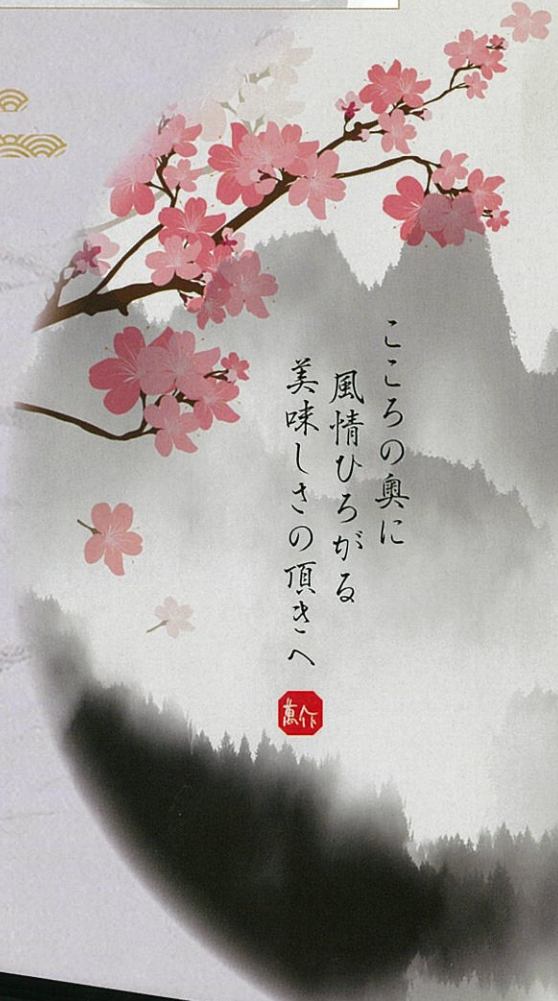 こころの奥に
風情ひろがる
美味しさの頂きへ
萬作